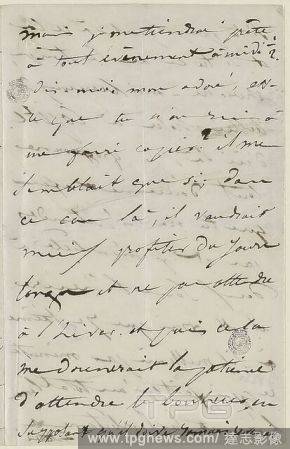 mais je me tiendrai prête
à tout évènement à midi ½.
Dis-moi, mon adoré, est-
ce que tu n'as rien à
me faire copier? il me
semblait que si; dans
ce cas là, il vaudrait
mieux profiter du jour
et ne pas attendre
à l'hiver. et puis cela
me donnerait la patience
d'attendre le bonheur, en
supposant qu'il doive jamais
TPG
www.tpgnews.com 達志影像